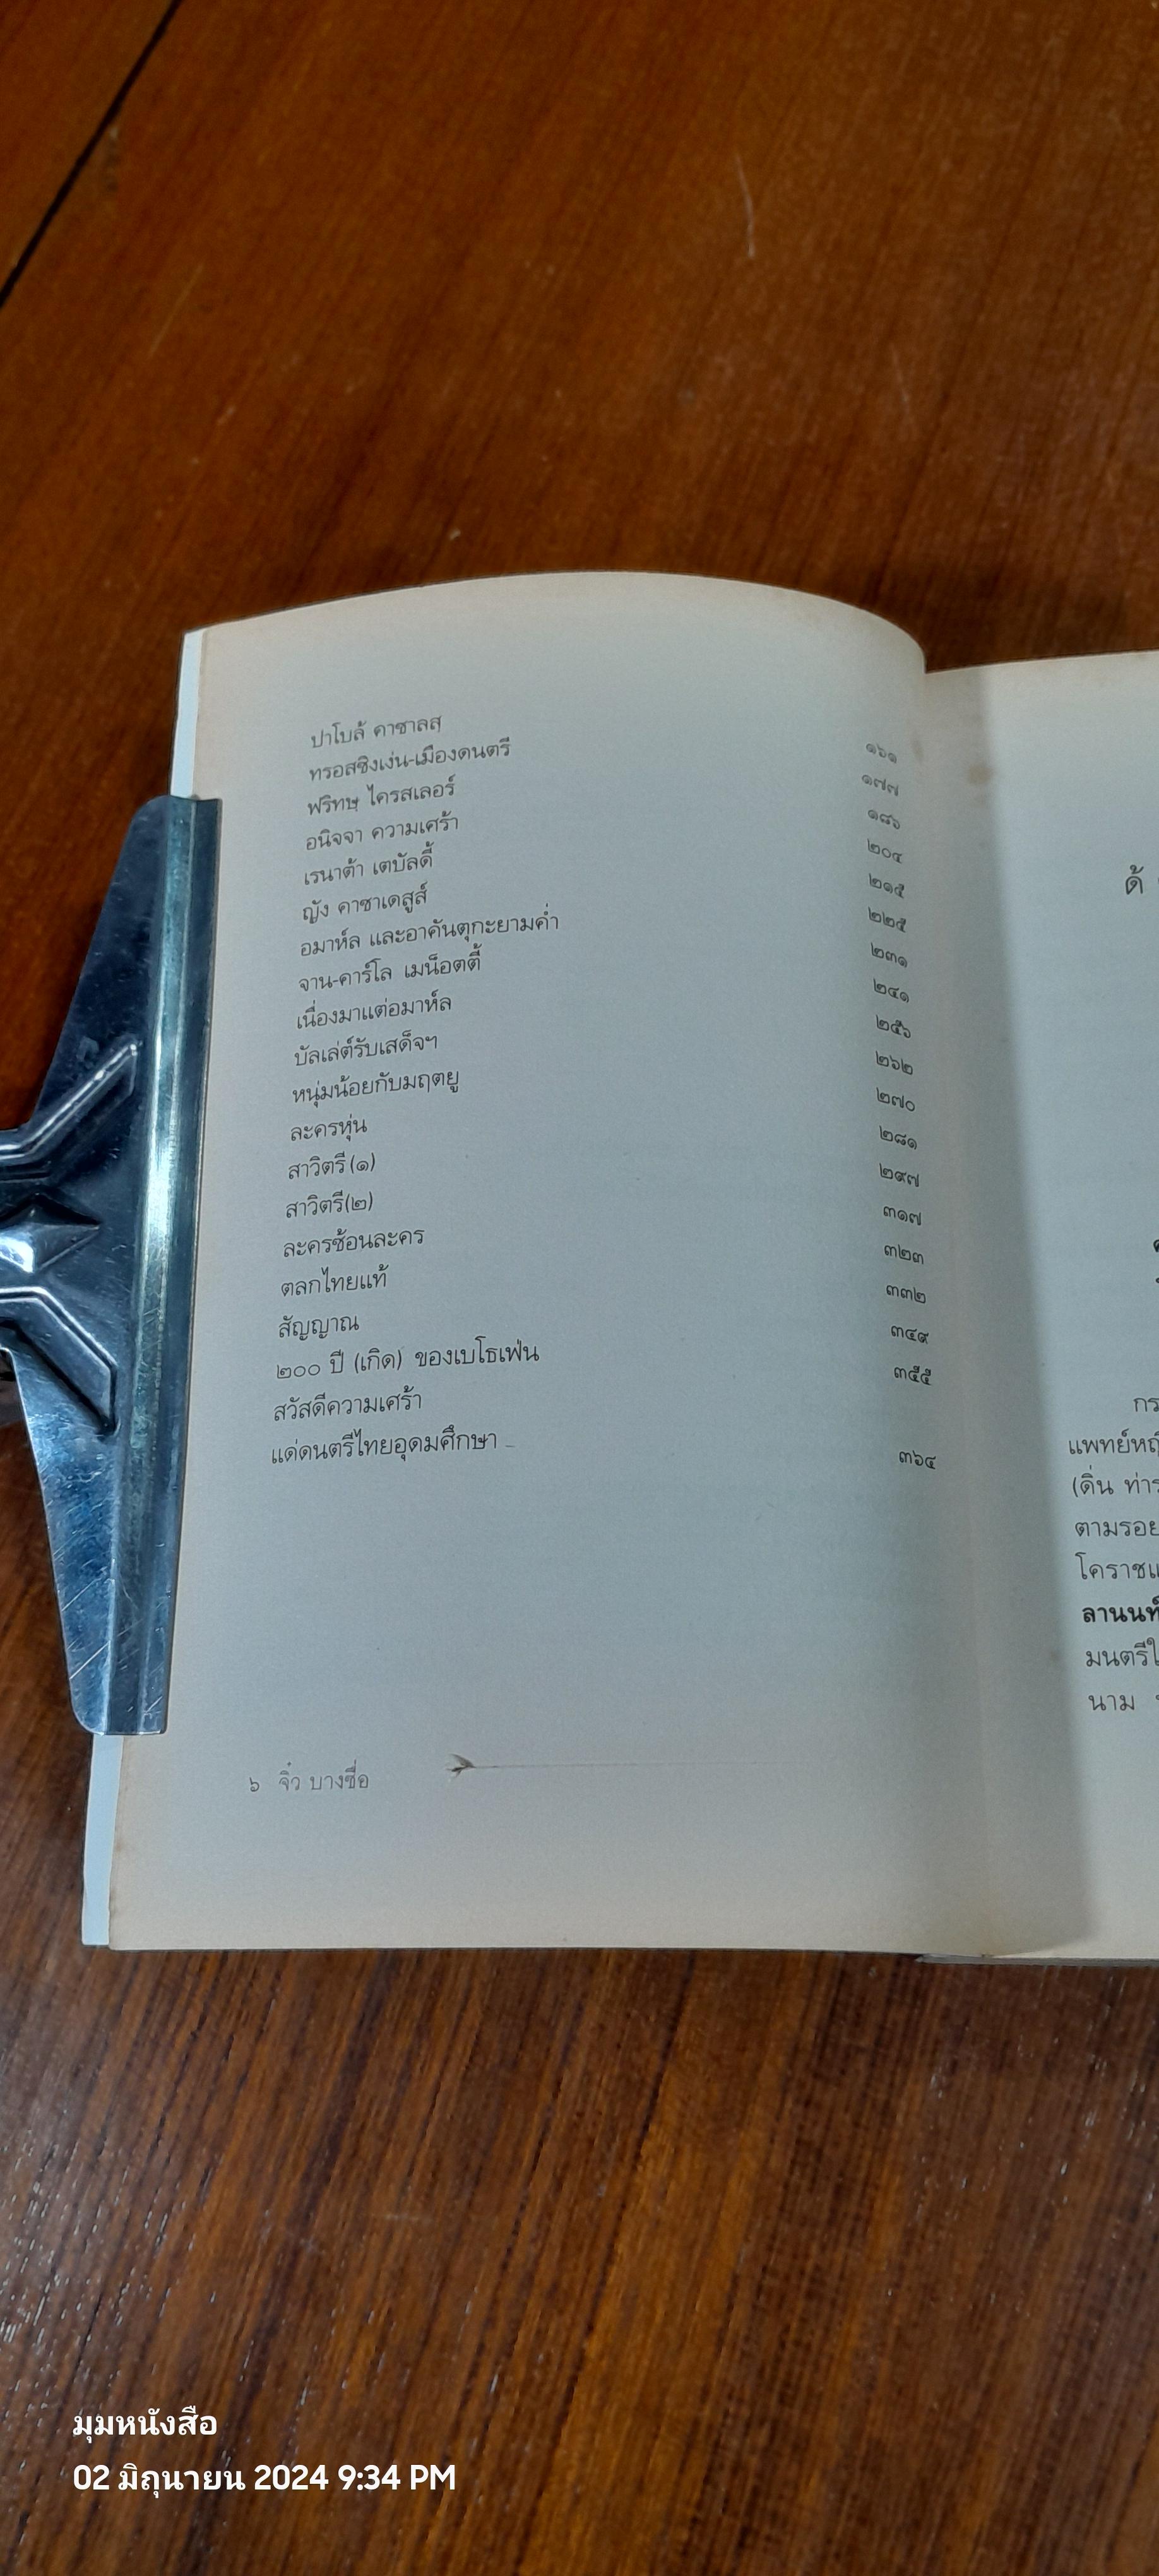 ปาโบล้ คาซาลสฺ ๑๖๑
ทรอสซิงเง่น-เมืองดนตรี ๑๗๗
ฟริทษฺ ไครสเลอร์ ๑๘๖
อนิจจา ความเศร้า ๒๐๔
เรนาต้า เตบัลดี้ ๒๑๕
ญัง คาซาเดสูส์ ๒๒๕
อมาห์ล และอาคันตุกะยามค่ำ ๒๓๑
จาน-คาร์โล เมน็อตตี้ ๒๔๑
เนื่องมาแต่อมาห์ล ๒๕๖
บัลเล่ต์รับเสด็จฯ ๒๖๒
หนุ่มน้อยกับมฤตยู ๒๗๐
ละครหุ่น ๒๘๑
สาวิตรี (๑) ๒๙๗
สาวิตรี(๒) ๓๑๗
ละครซ้อนละคร ๓๒๓
ตลกไทยแท้ ๓๓๒
สัญญาณ ๓๔๙
๒๐๐ ปี (เกิด) ของเบโธเฟ่น ๓๕๕
สวัสดีความเศร้า
แด่ดนตรีไทยอุดมศึกษา ๓๖๔
๖ จิ๋ว บางซื่อ
ด้
กร
แพทย์หญิ
(ดิ่น ท่าร
ตามรอย
โคราชแ
ลานนท์
มนตรีใ
นาม
มุมหนังสือ
02 มิถุนายน 2024 9:34 PM